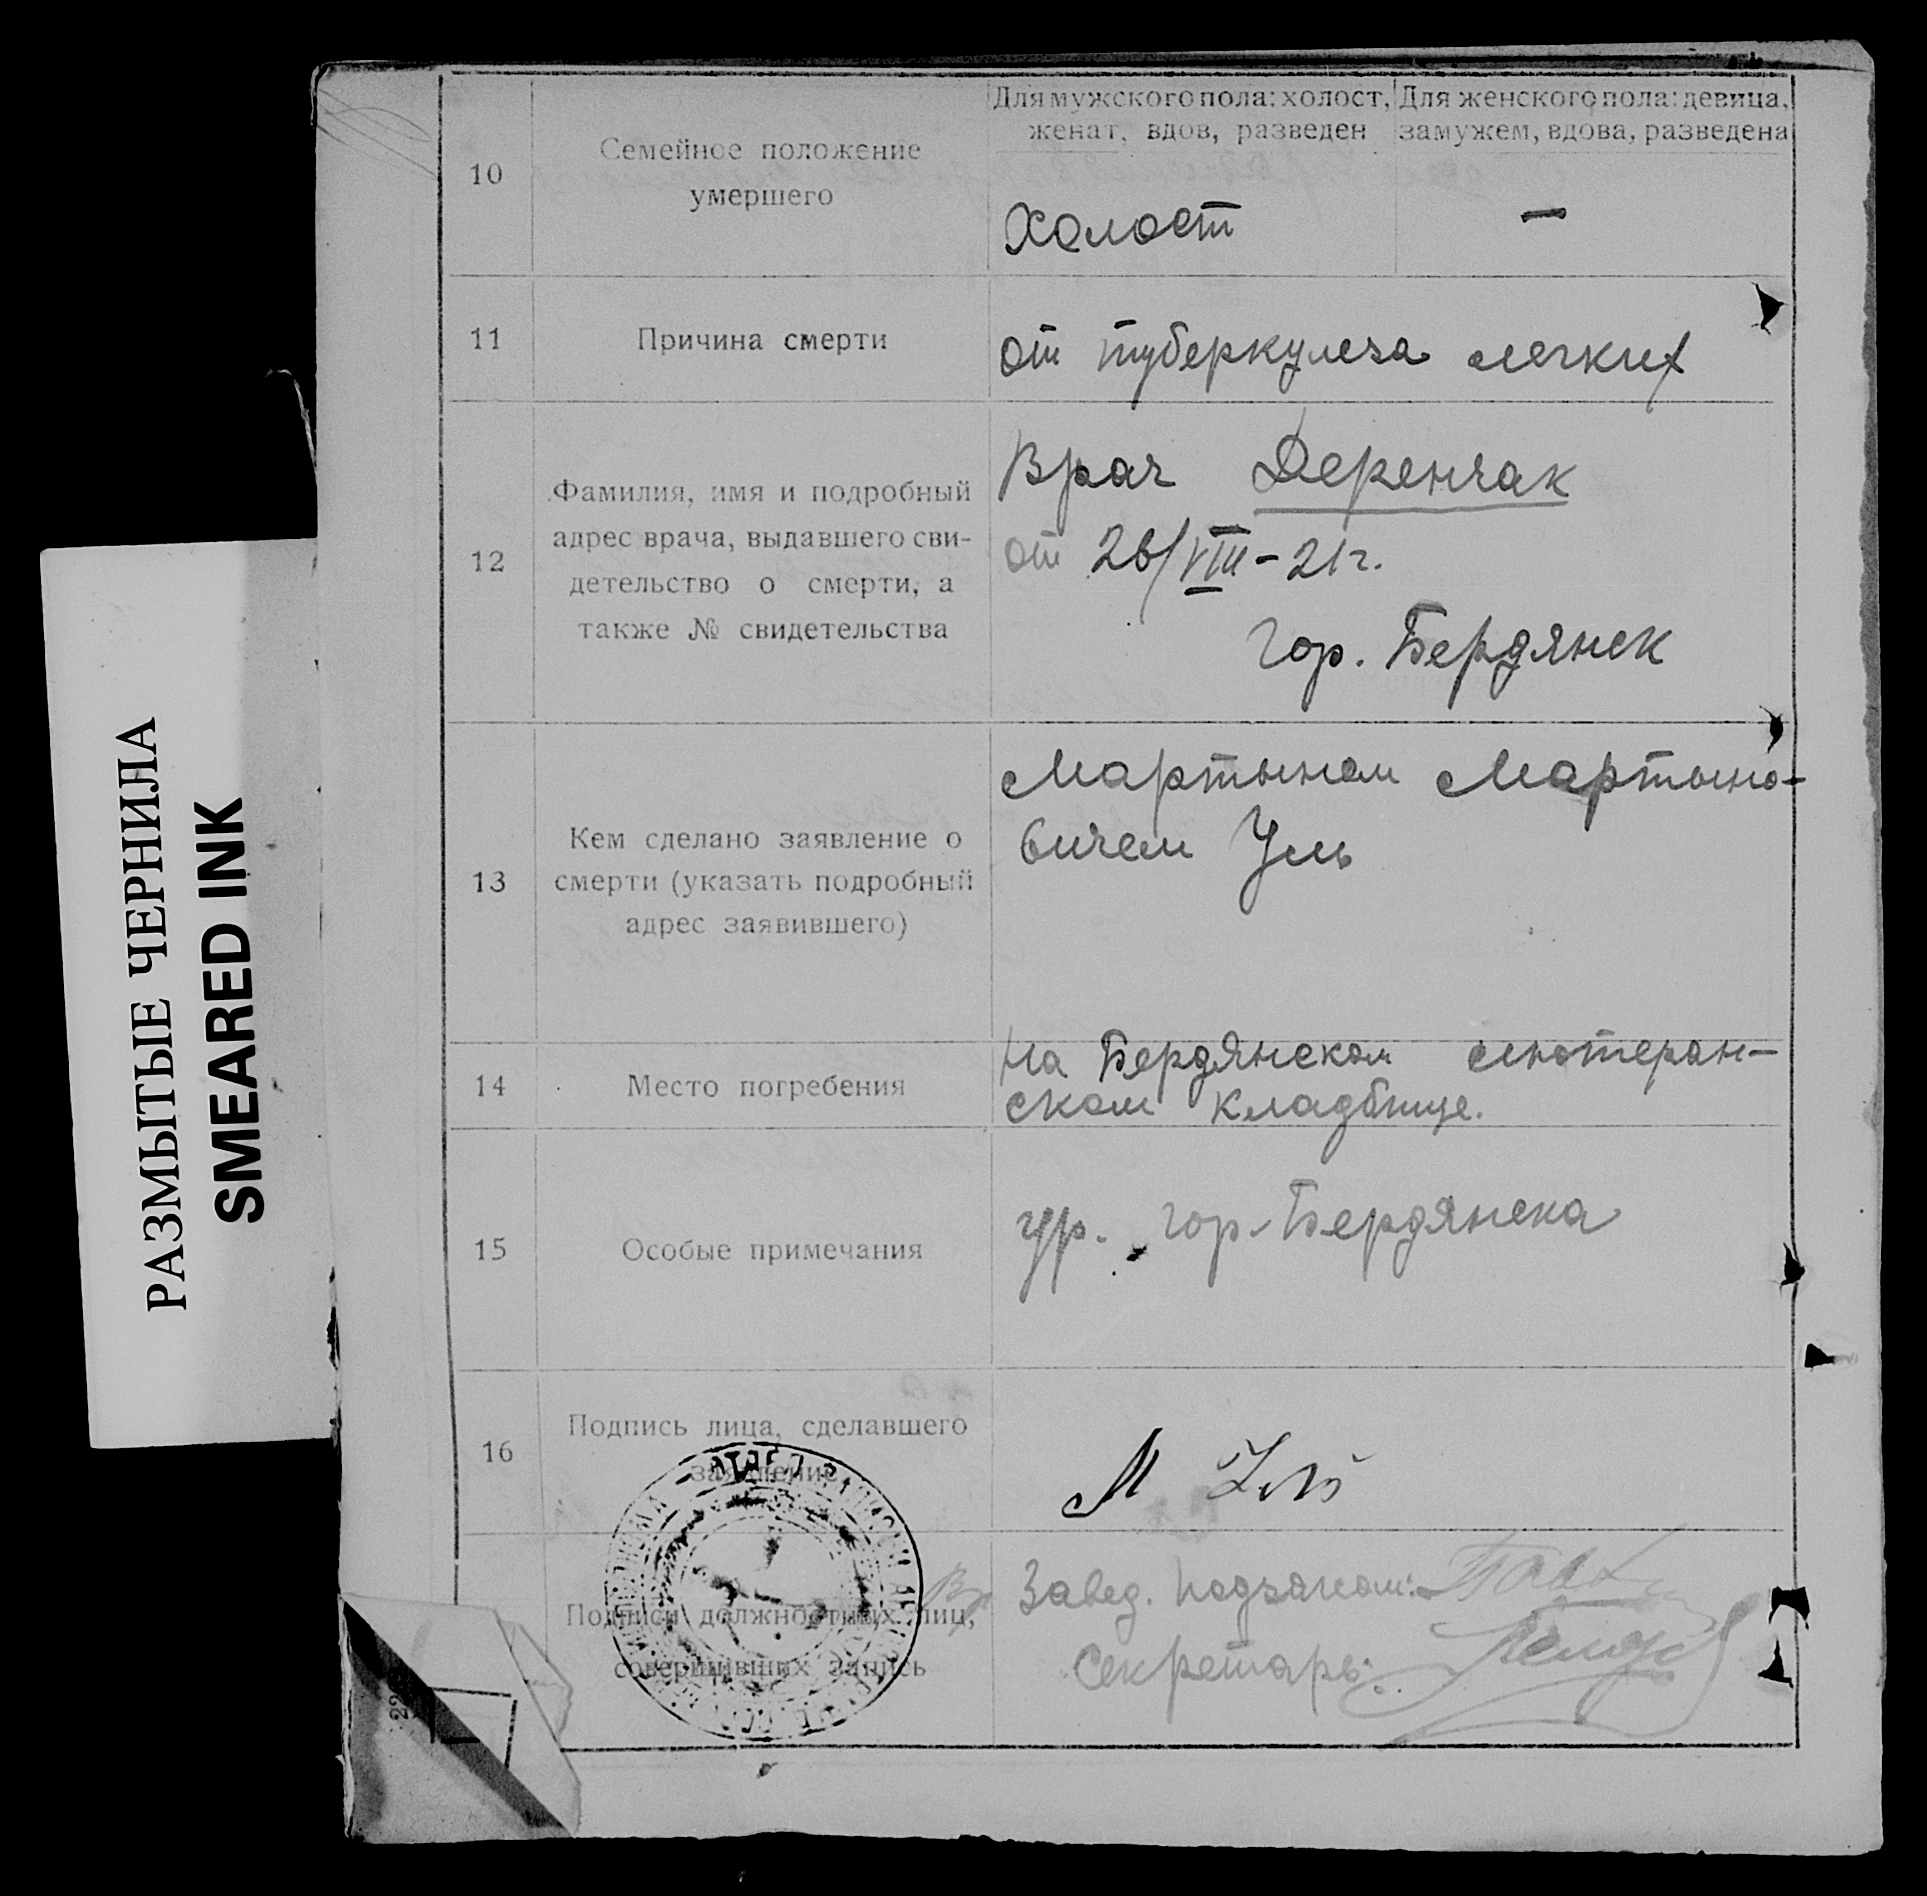 Для мужского пола: холост,
женат, вдов, разведен
Для женского пола: девица,
замужем, вдова, разведена
10
Семейное положение
умершего
Холост
—
11
Причина смерти
от туберкулеза легких
12
Фамилия, имя и подробный
адрес врача, выдавшего сви-
детельство о смерти, а
также № свидетельства
Врач Деренчак
от 26/VIII – 21 г.
гор. Бердянск
13
Кем сделано заявление о
смерти (указать подробный
адрес заявившего)
Мартыном Мартыно-
вичем Уль
14
Место погребения
на Бердянском лютеран-
ском кладбище.
15
Особые примечания
ур. гор. Бердянска
16
Подпись лица, сделавшего
заявление
М Уль
Подписи должностных лиц,
совершивших запись
Вр
Завед. подзагсом:
Секретарь:
РАЗМЫТЫЕ ЧЕРНИЛА
SMEARED INK